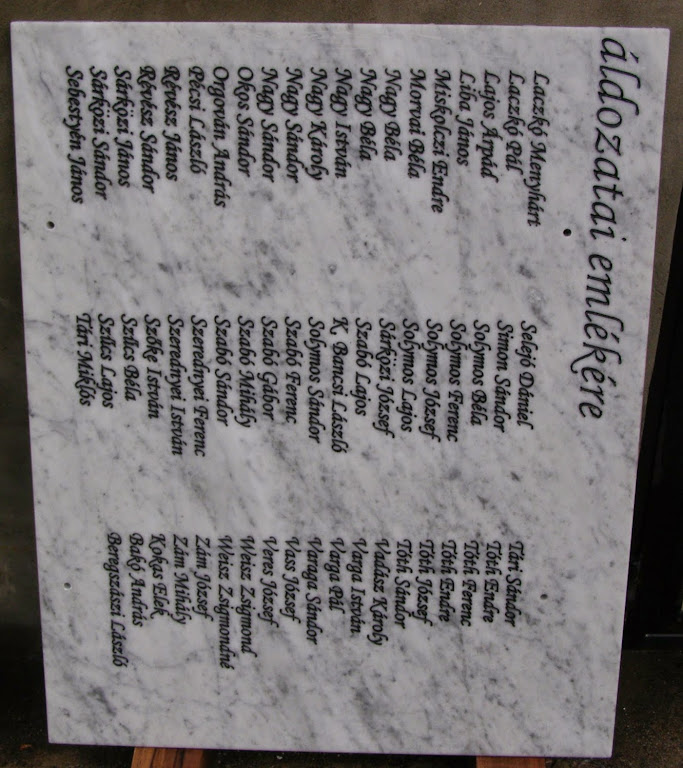 áldozatai emlékére
Laczkó Menyhárt
Laczkó Pál
Lajos Árpád
Liba János
Miskolczi Endre
Morvai Béla
Nagy Béla
Nagy Béla
Nagy István
Nagy Károly
Nagy Sándor
Nagy Sándor
Okos Sándor
Orgován András
Pécsi László
Révész János
Révész Sándor
Sárközi János
Sárközi Sándor
Sebestyén János
Selejó Dániel
Simon Sándor
Solymos Béla
Solymos Ferenc
Solymos József
Solymos Lajos
Sárközi József
Szabó Lajos
K. Buncsi László
Solymos Sándor
Szabó Ferenc
Szabó Gábor
Szabó Mihály
Szabó Sándor
Szerednyei Ferenc
Szerednyei István
Szőke István
Szűcs Béla
Szűcs Lajos
Tári Miklós
Tári Sándor
Tóth Endre
Tóth Ferenc
Tóth Endre
Tóth József
Tóth Sándor
Vadász Károly
Varga István
Varga Pál
Varaga Sándor
Vass József
Veres József
Weisz Zsigmond
Weisz Zsigmondné
Zám József
Zám Mihály
Kokas Elek
Bakó András
Beregszászi László